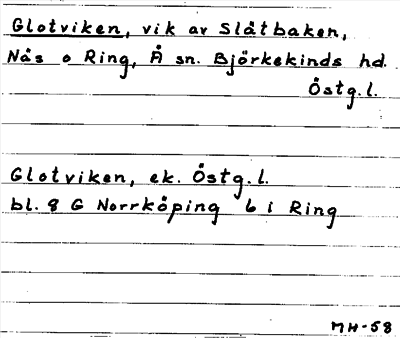 Glotviken, vik av Slätbaken,
Näs o Ring, Å sn. Björkekinds hd.
Östg.l.
Glotviken, ek. Östg.l.
bl. 8 G Norrköping 6 i Ring
MH-58